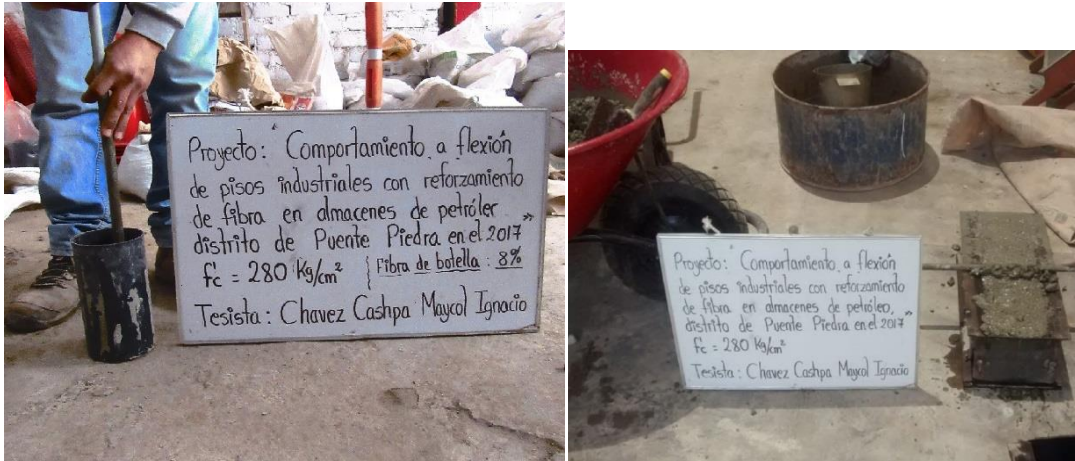 Proyecto: "Comportamiento a flexión
de pisos industriales con reforzamiento
de fibra en almacenes de petróler
distrito de Puente Piedra en el 2017"
f'c = 280 Kg/cm² { Fibra de botella: 8%
Tesista: Chavez Cashpa Maycol Ignacio
Proyecto: "Comportamiento a flexión
de pisos industriales con reforzamiento
de fibra en almacenes de petróleo,
distrito de Puente Piedra en el 2017"
f'c = 280 Kg/cm²
Tesista: Chavez Cashpa Maycol Ignacio